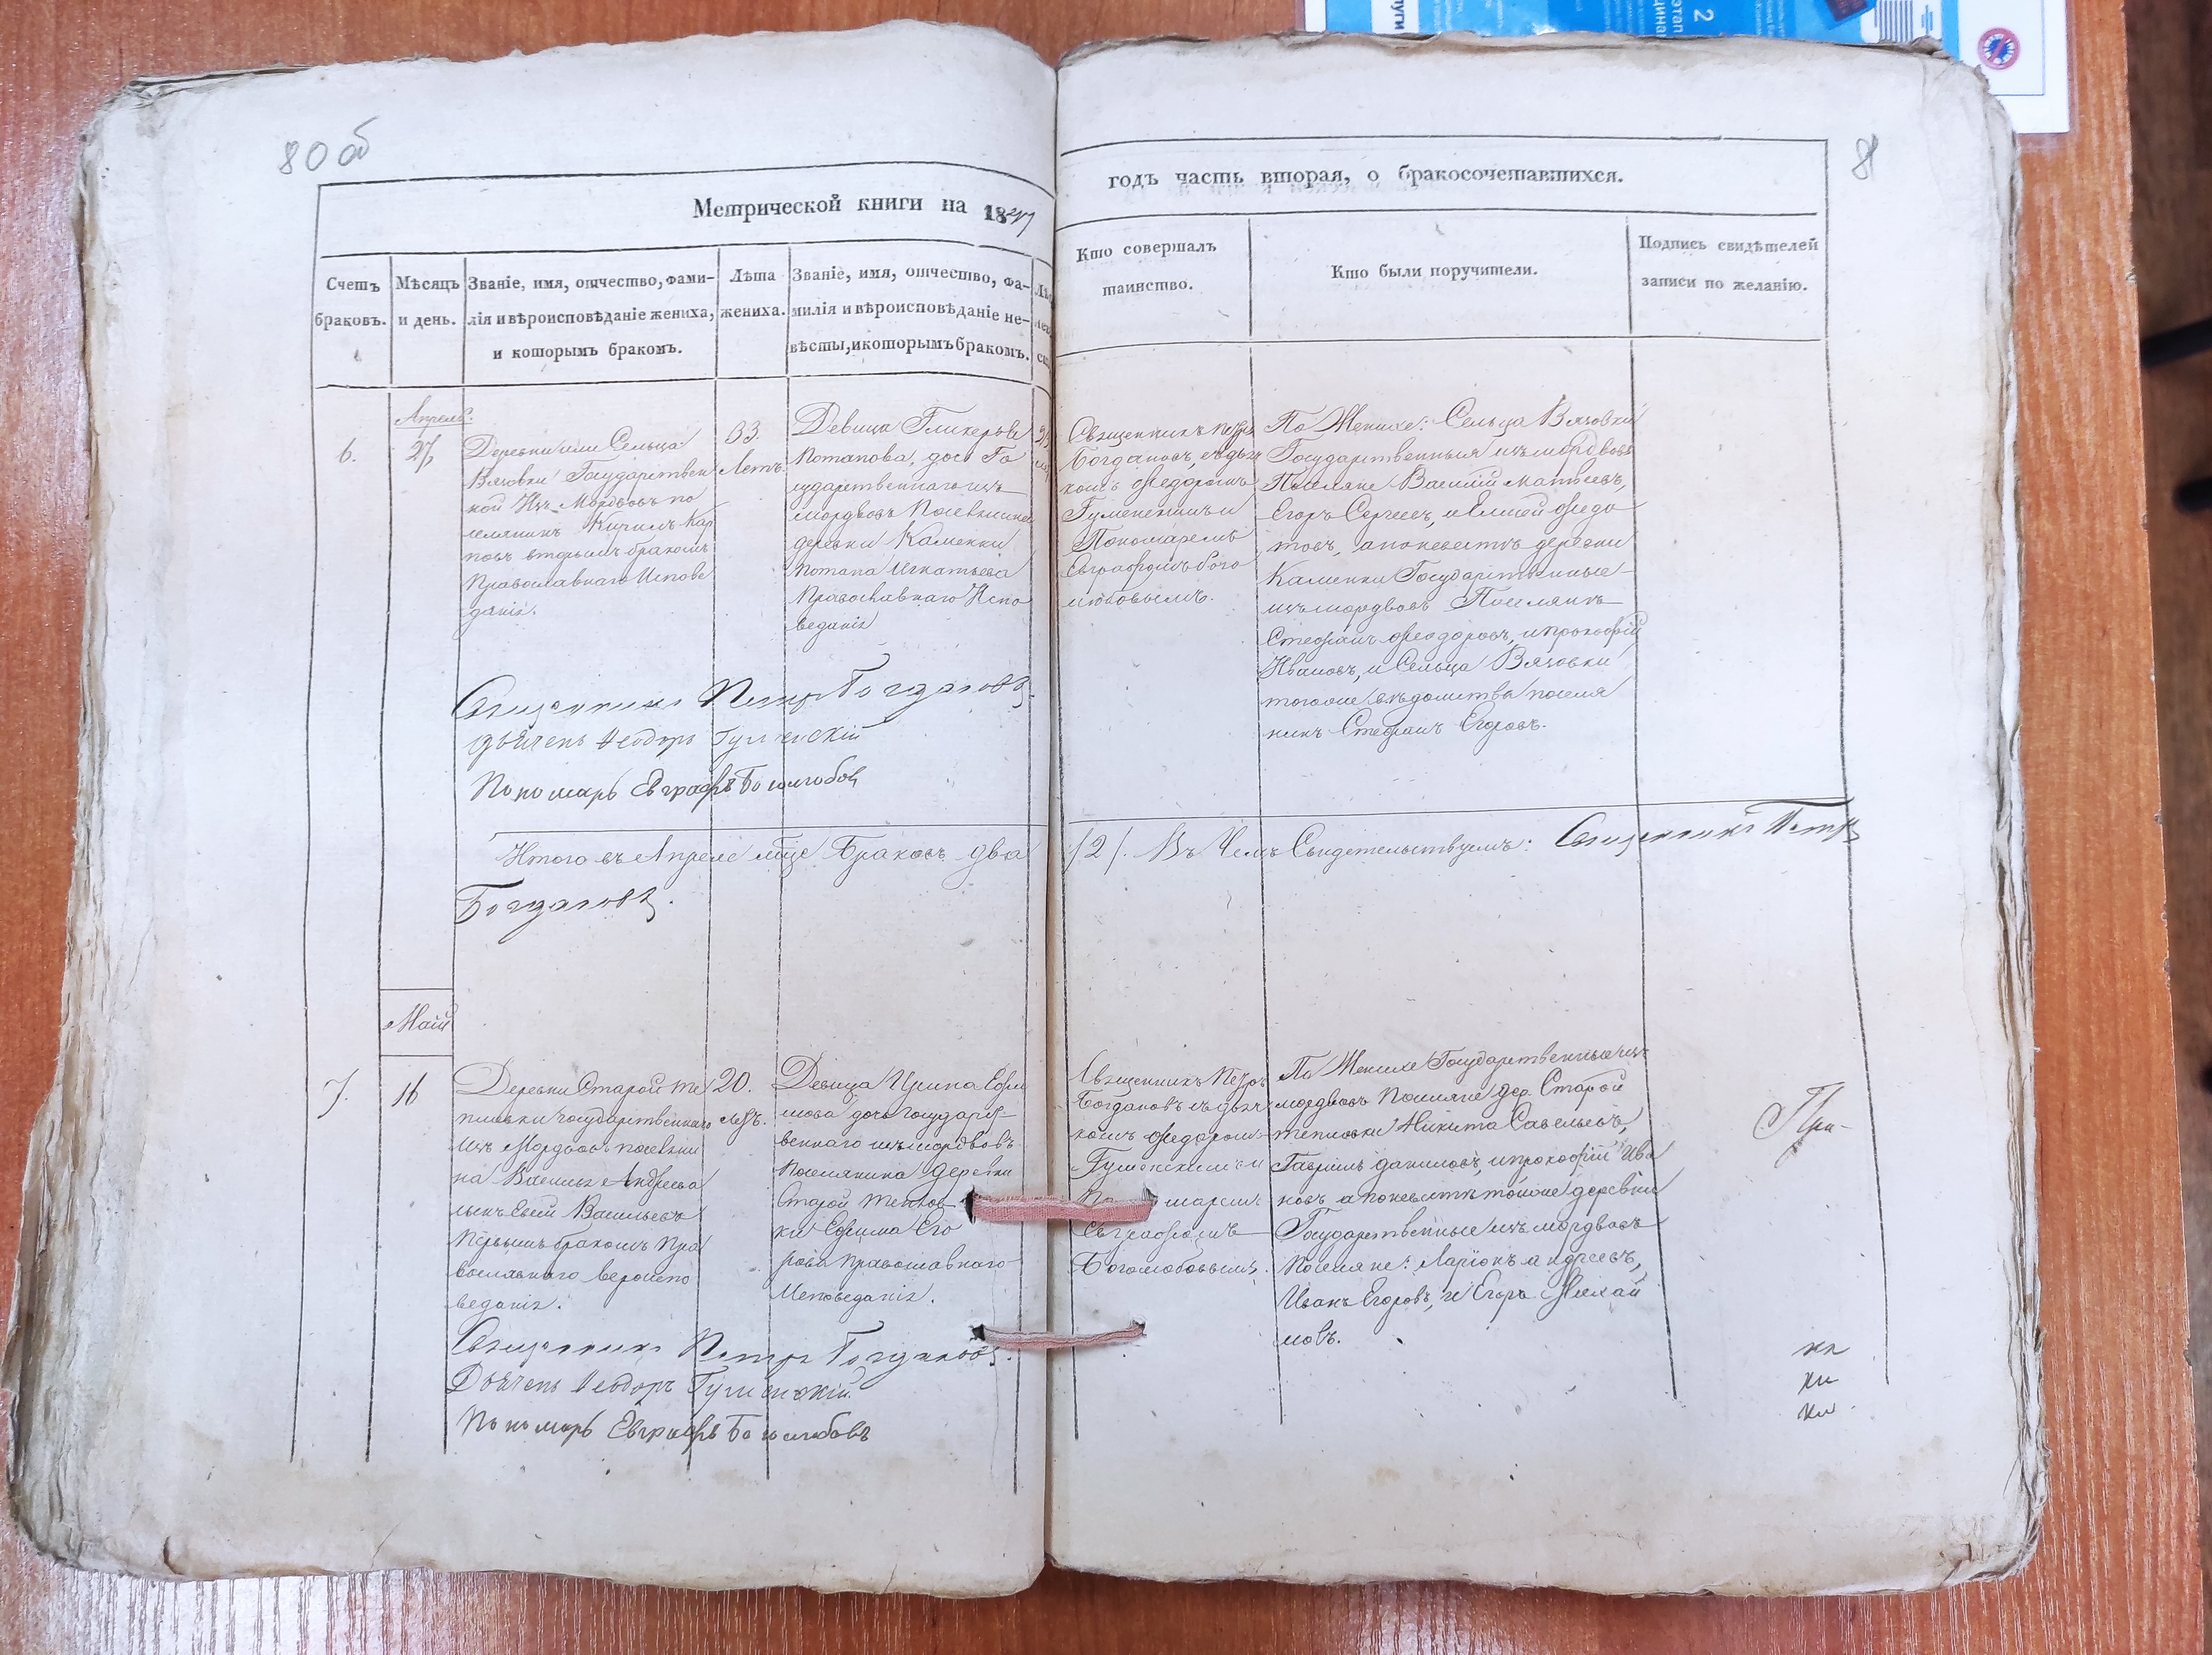 80 об
81
Метрической книги на 1847
годъ часть вторая, о бракосочетавшихся.
Счетъ
браковъ.
Мѣсяцъ
и день.
Званіе, имя, отчество, фами-
лія и вѣроисповѣданіе жениха,
и которымъ бракомъ.
Лѣта
жениха.
Званіе, имя, отчество, фа-
милія и вѣроисповѣданіе не-
вѣсты, и которымъ бракомъ.
Кто совершалъ
таинство.
Кто были поручители.
Подпись свидѣтелей
записи по желанію.
6.
Апрель.
27,
Деревни или Сельца
Вязовки Государствен
ной Изъ Мордвовъ по
селянинъ Кирилъ Кар
повъ вторымъ бракомъ
Православнаго Испове
данія.
33.
Летъ.
Девица Гликерья
Потапова, дочь Го
сударственнаго изъ
мордвовъ Поселянина
деревни Каменки
Потапа Игнатьева
Православнаго Испо
веданія
Священникъ Петръ
Богдановъ, съ дьяч
комъ Федоромъ
Гуменскимъ и
Пономаремъ
Евграфомъ Бого
любовымъ.
По Женихе: Сельца Вязовки
Государственныя изъ мордвовъ
Поселяне Василий Матвеевъ,
Егоръ Сергеевъ, и Елисей Федо
товъ, а по невесте деревни
Каменки Государственные
изъ мордвовъ Поселяне
Стефанъ Феодоровъ, и Прокофій
Ивановъ, и Сельца Вязовки
тогоже ведомства поселя
нинъ Стефанъ Егоровъ.
Священникъ Петръ Богдановъ.
Дьячекъ Феодоръ Гуменскій
Пономарь Евграфъ Боголюбовъ
Итого въ Апреле м̃це Браковъ два
/2/. Въ Чемъ Свидетельствуемъ: Священникъ Петръ
Богдановъ.
Маій
7.
16
Деревни Старой Те
пловки Государственнаго
Изъ Мордвовъ поселяни
на Василья Андреева
сынъ Евсей Васильевъ
Первымъ бракомъ Пра
вославнаго вероиспо
веданія.
20.
летъ.
Девица Ирина Ефи
мова дочь Государст
веннаго изъ мордвовъ
Поселянина деревни
Старой Теплов
ки Ефима Его
рова Православнаго
Исповеданія.
Священникъ Петръ
Богдановъ съ дьяч
комъ Федоромъ
Гуменскимъ и
По марем
Евграфомъ
Боголюбовымъ.
По Женихе Государственные изъ
мордвовъ Поселяне дер. Старой
тепловки Никита Савельевъ,
Гаврилъ Даниловъ, и Прокофій Ива
новъ а по невесте тойже деревни
Государственные изъ мордвовъ
Поселяне: Ларіонъ Андреевъ,
Иванъ Егоровъ, и Егоръ Михай
ловъ.
При-
Священникъ Петръ Богдановъ.
Дьячекъ Феодоръ Гуменскій.
Пономарь Евграфъ Боголюбовъ